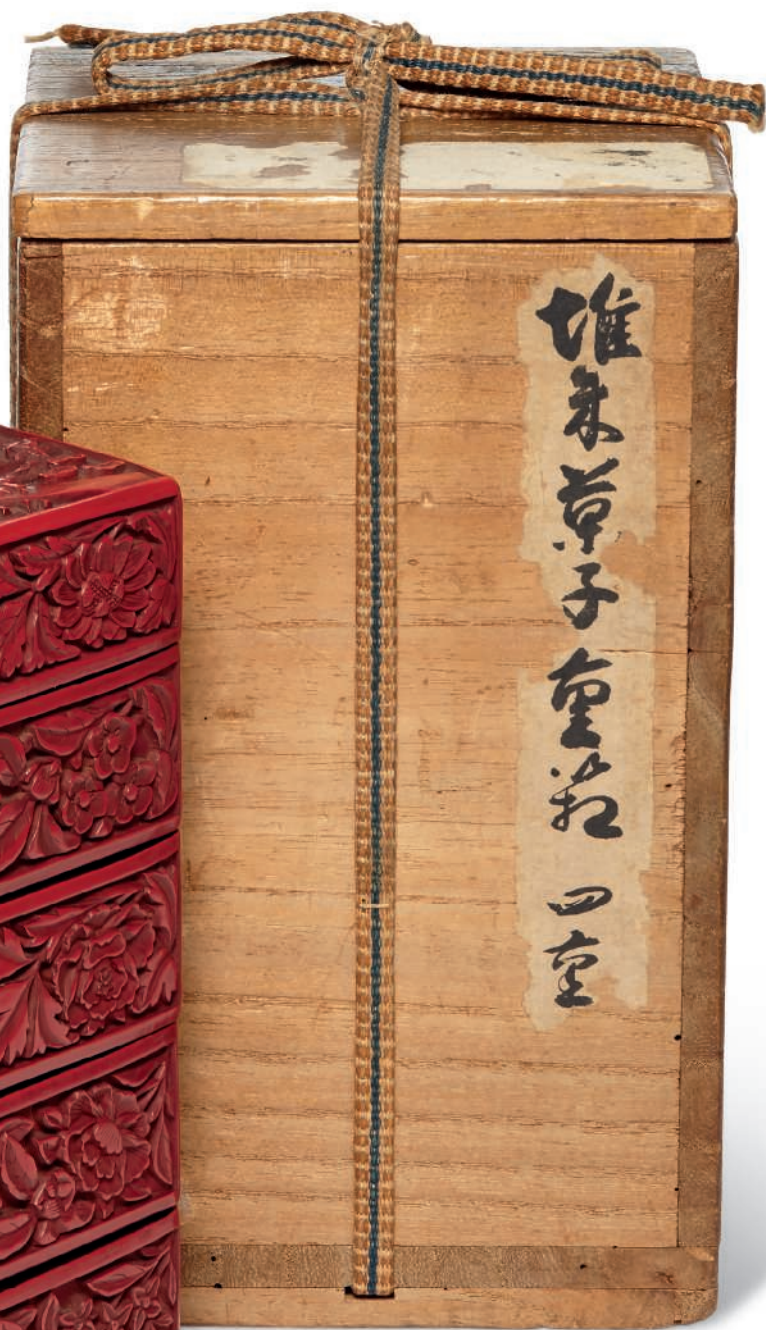 堆朱菓子重箱 四重